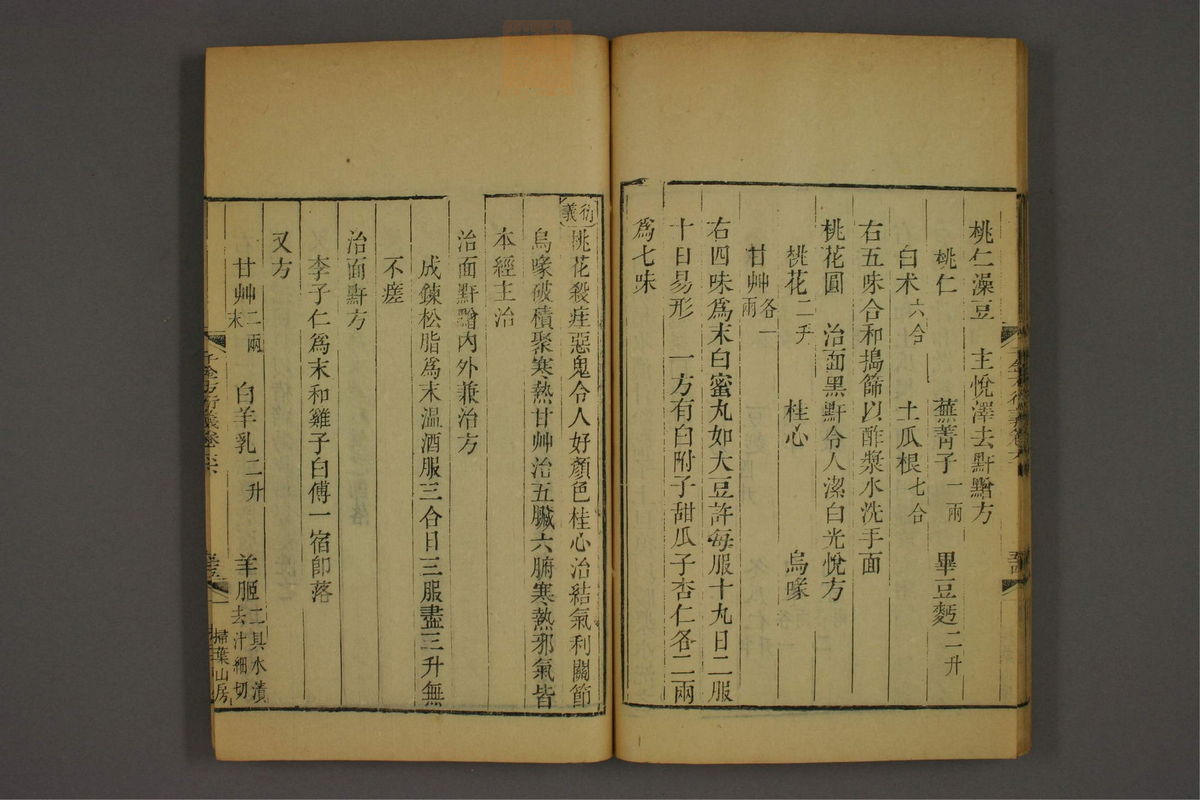 桃仁澡豆　主悅澤去䵟䵴方
桃仁　蕪菁子一兩　畢豆麪二升
白朮六合　土瓜根七合
右五味合和搗篩以酢漿水洗手面
桃花圓　治面黑䵟令人潔白光悅方
桃花二升　桂心　烏喙
甘艸各一兩
右四味爲末白蜜丸如大豆許每服十丸日二服
十日易形　一方有白附子甜瓜子杏仁各二兩
爲七味
衍義桃花殺疰惡鬼令人好顏色桂心治結氣利關節
烏喙破積聚寒熱甘艸治五臟六腑寒熱邪氣皆
本經主治
治面䵟䵴內外兼治方
成鍊松脂爲末温酒服三合日三服盡三升無
不瘥
治面䵟方
李子仁爲末和雞子白傅一宿卽落
又方
甘艸二兩末　白羊乳二升　羊胵二具水漬去汁細切
千金方衍義卷六
掃葉山房